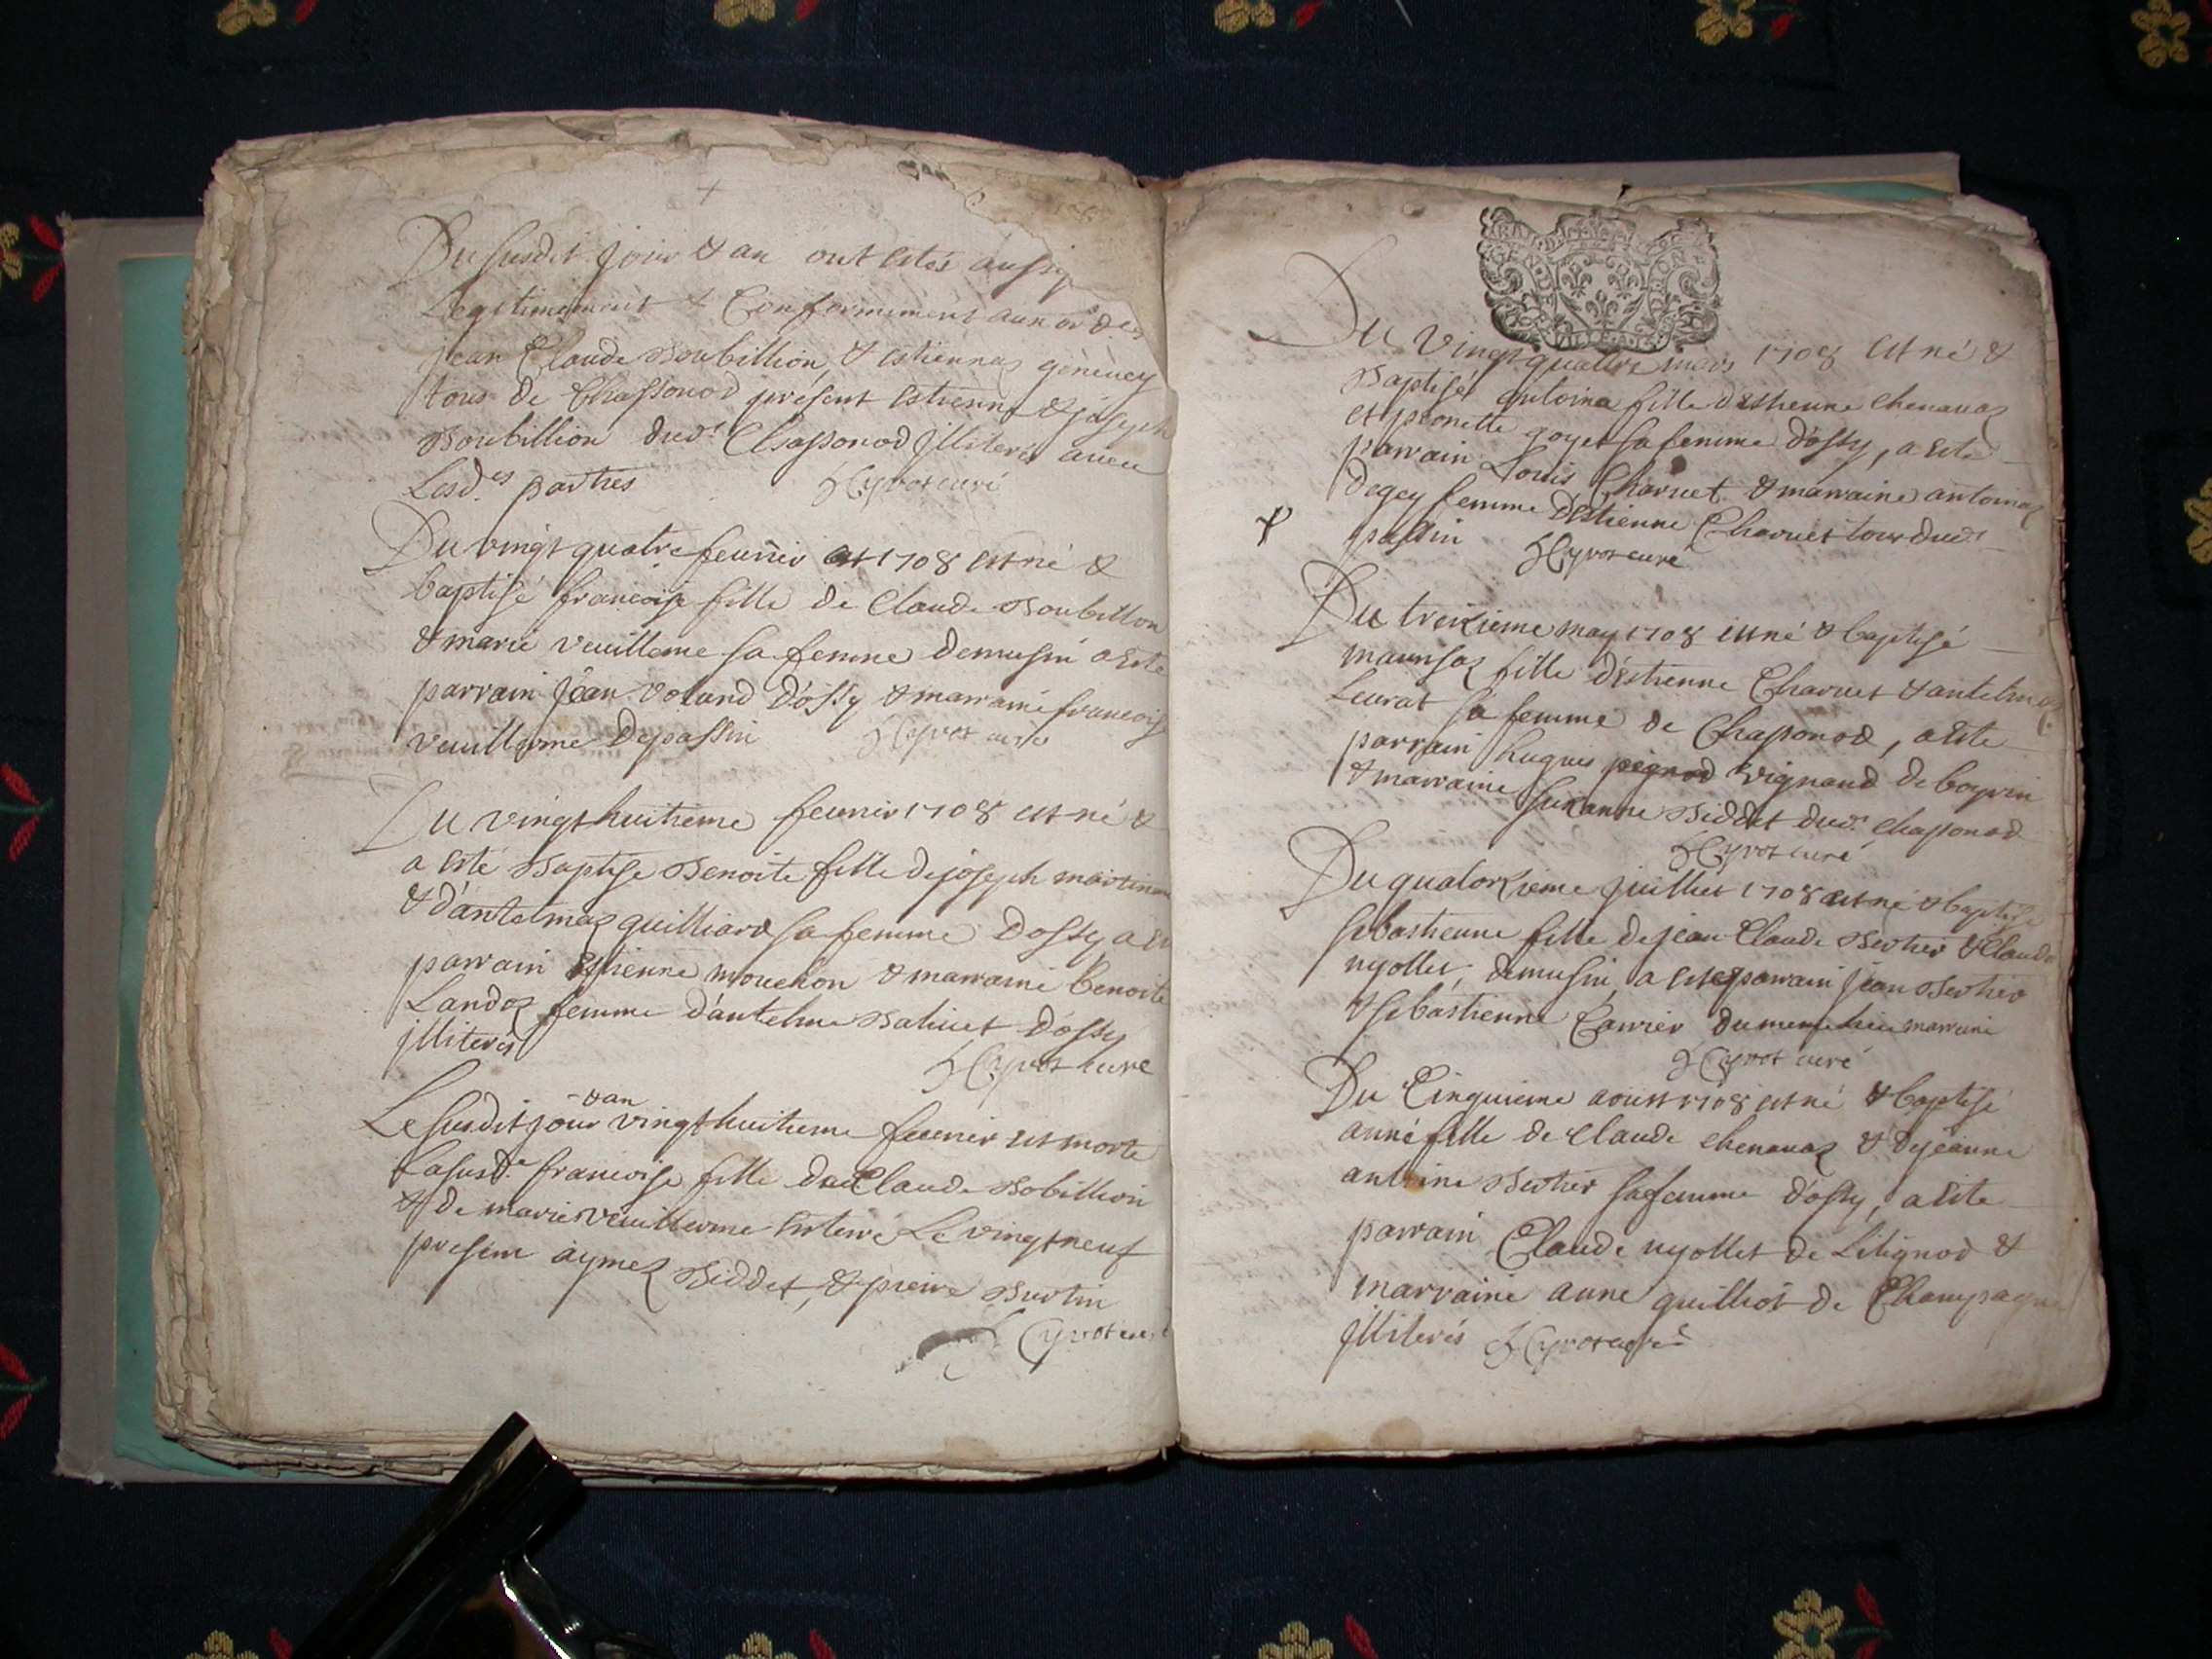 Du susdit jour & an ont estés aussy
Legitimement & Conformement aux ord.es
jean Claude Boubillion, & estiennaz genevey
tous de Chassonod présent estienne & joseph
Boubillion dud.t Chassonod jlliterés avec
Lesd.es parties Cyvot curé
Du vingt quatre feuvrier 1708 est né &
baptisé francoise fille de Claude Boubillon
& marie veuillerme sa femme demusin a esté
parrain jean voland d'ossy & marraine francoise
veuillerme de passin Cyvot curé
Du vingt huitieme feuvrier 1708 est né &
a esté Baptise Benoite fille de joseph martinan
& d'antelmaz guilliard sa femme Dossy a est
parrain estienne mouchon & marraine benoite
Landoz femme d'antelme Balivet d'ossy
jlliterés Cyvot curé
& an
Le susdit jour vingt huitieme feuvrier est morte
Lasusd.e francoise fille de Claude Bobillion
& de marie veuillerme enterré Le vingt neuf
present aymez Biddet, & pierre Burtin
Cyvot curé
Du vingt quattre mars 1708 est né &
Baptisé antoina fille d'estienne chenavaz
et peronette goyet sa femme d'ossy, a esté
parrain Louis Charvet & marraine antoinaz
degey femme d'estienne Charvet tous dud.t
passin Cyvot curé
Du treizieme may 1708 est né & baptisé
fille d'estienne Charvet & antelmaz
Leurat sa femme de Chassonod, a esté
parrain hugues vignand de boyvin
& marraine suzanne Biddet dud.t chassonod
Cyvot curé
Du quatorzieme juilliet 1708 est né & baptisé
sebastienne fille de jean Claude Bertier & Claude
nyollet, demusin, a esté parrain jean Bertier
& sebastienne Carrier du meme lieu marraine
Cyvot curé
Du Cinquieme aoust 1708 est né & baptisé
anne fille de Claude chenavaz & de jeanne
antoine Bertier sa femme d'ossy, a esté
parrain Claude nyollet de Lilignod &
marraine anne guilliot de Champagne
jlliterés Cyvot curé